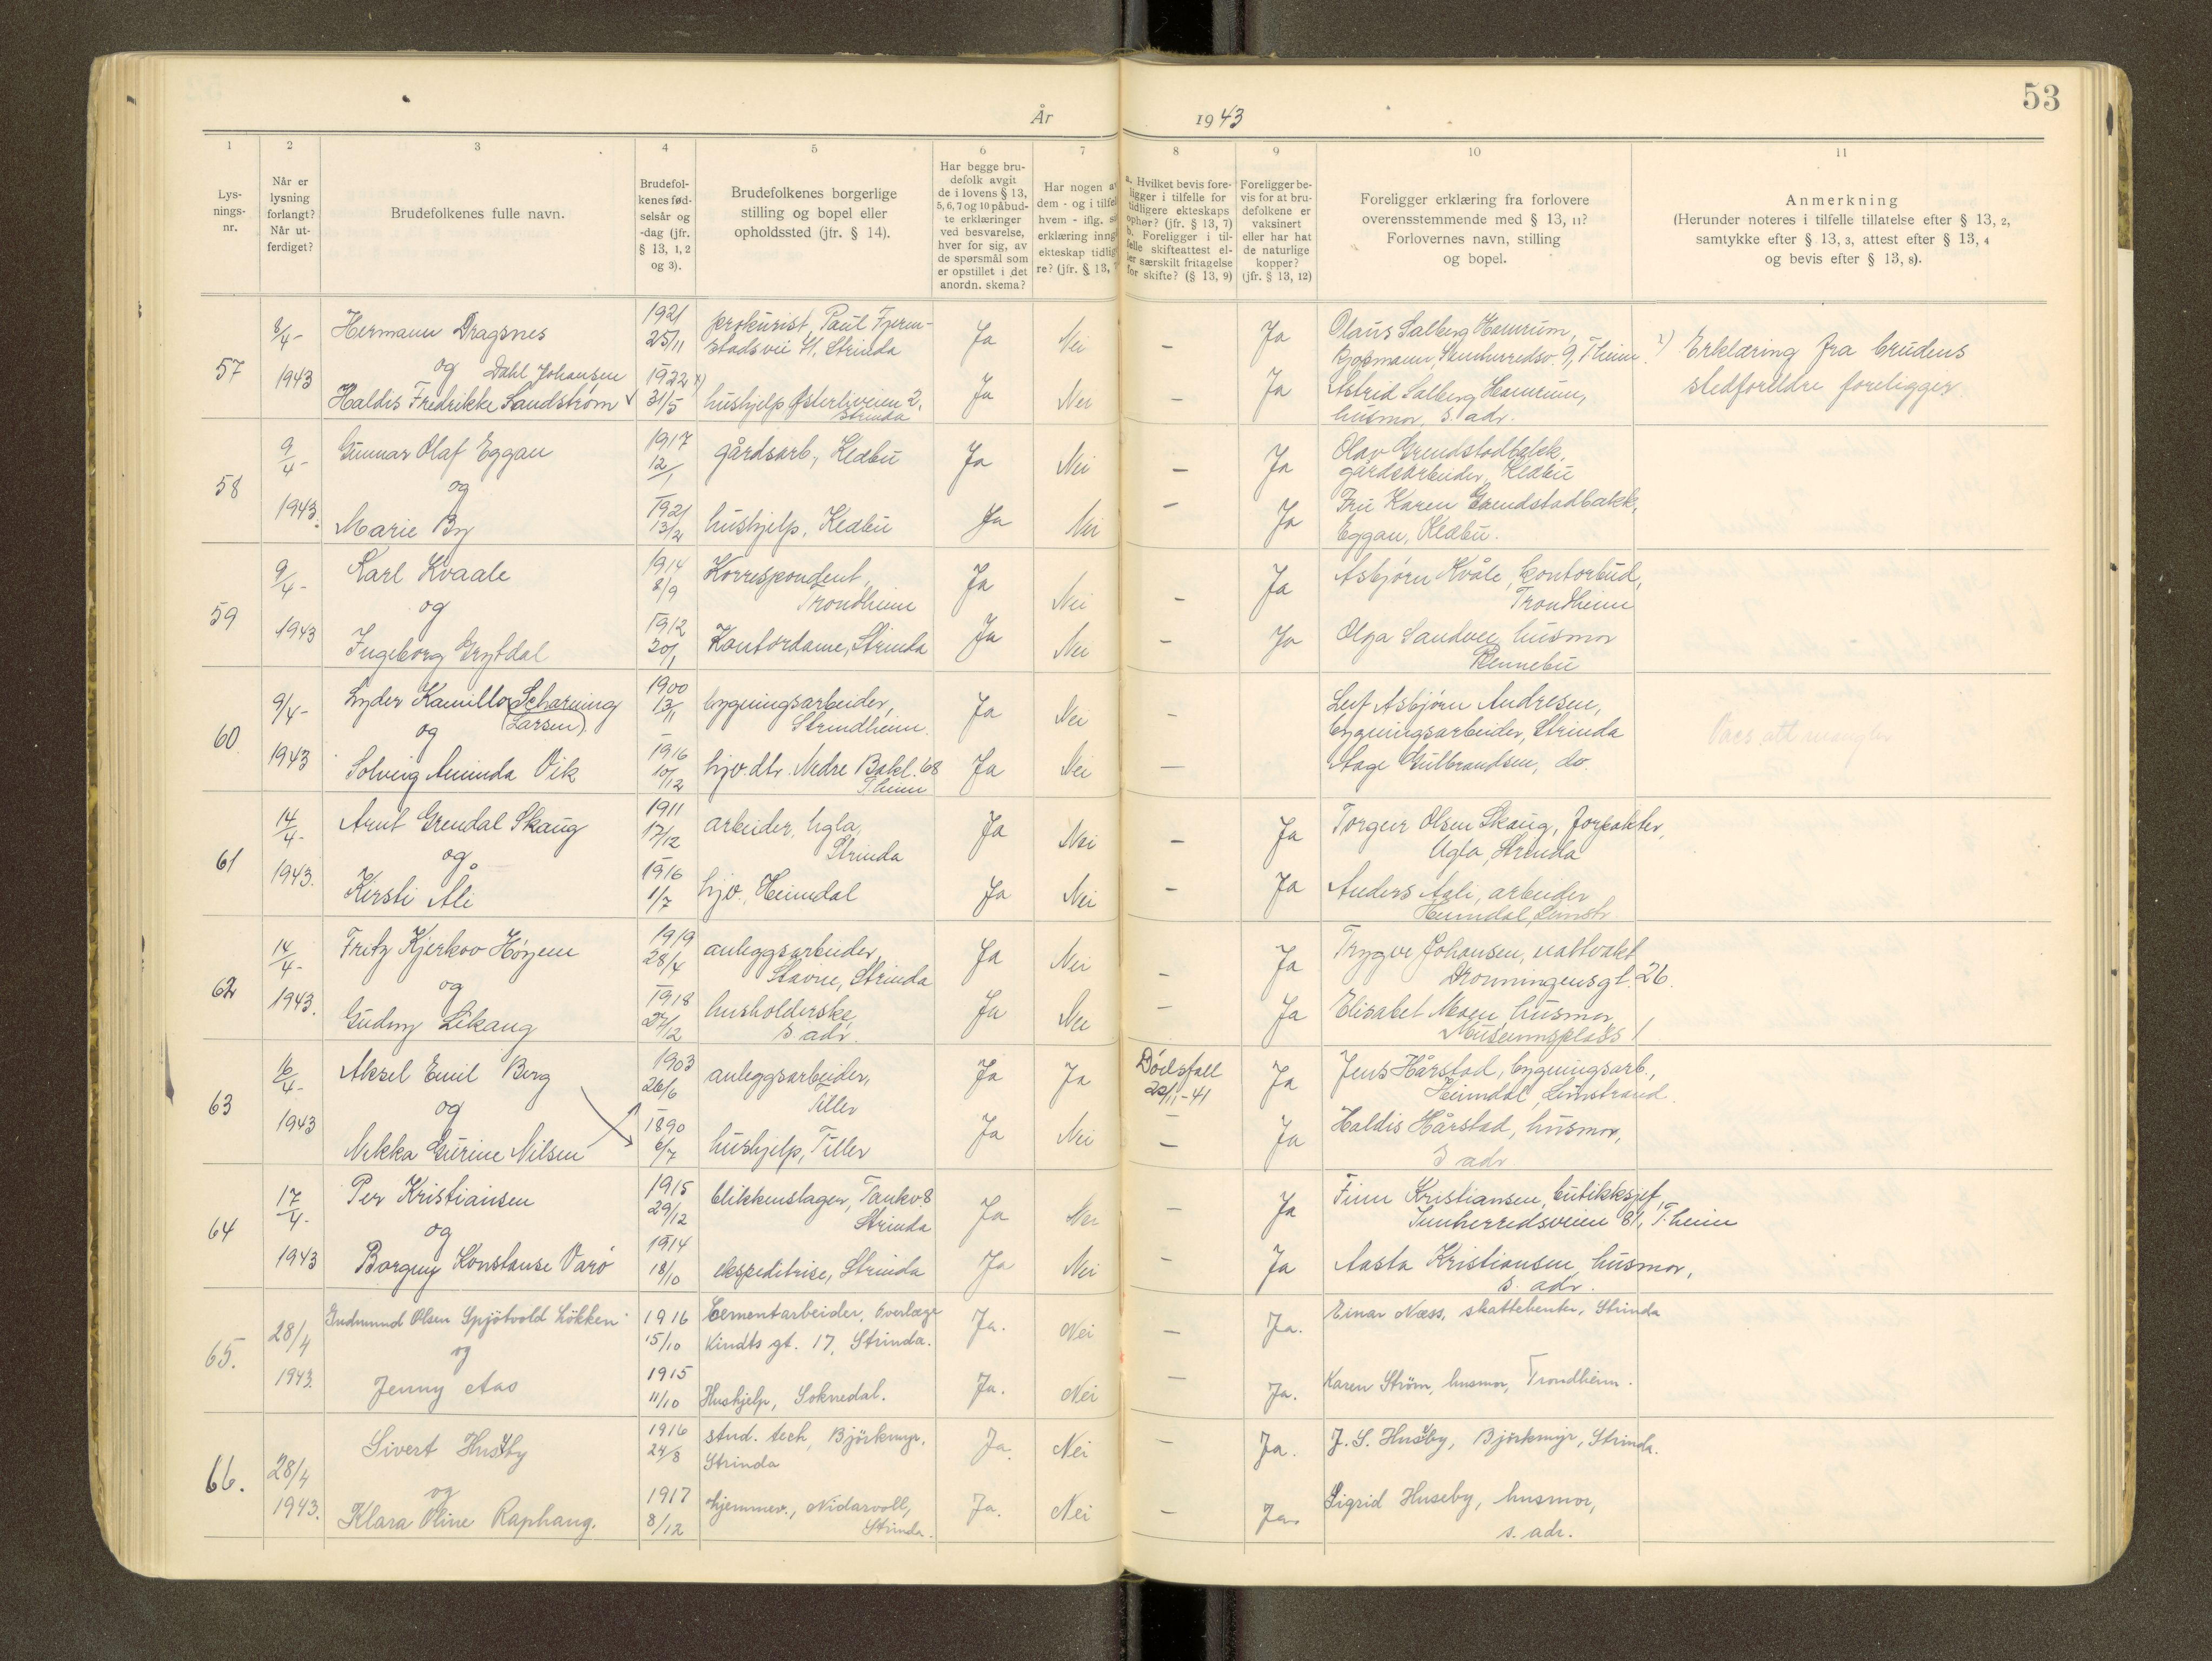 53
År 1943
1 2 3 4 5 6 7 8 9 10 11
Lys-
nings-
nr.
Når er
lysning
forlangt?
Når ut-
ferdiget?
Brudefolkenes fulle navn.
Brudefol-
kenes fød-
selsår og
-dag (jfr.
§ 13, 1, 2
og 3).
Brudefolkenes borgerlige
stilling og bopel eller
opholdssted (jfr. § 14).
Har begge bru-
defolk avgit
de i lovens § 13,
5, 6, 7 og 10 påbud-
te erklæringer
ved besvarelse,
hver for sig, av
de spørsmål som
er opstillet i det
anordn. skema?
Har nogen a
dem - og i tilfel
hvem - iflg.
erklæring inng
ekteskap tidlig
re? (jfr. § 13,
a. Hvilket bevis fore-
ligger i tilfelle for
tidligere ekteskaps
ophør? (jfr. § 13, 7)
b. Foreligger i til-
felle skifteattest el-
ler særskilt fritagelse
for skifte? (§ 13, 9)
Foreligger be-
vis for at bru-
defolkene er
vaksinert
eller har hat
de naturlige
kopper?
(jfr. § 13, 12)
Foreligger erklæring fra forlovere
overensstemmende med § 13, 11?
Forlovernes navn, stilling
og bopel.
Anmerkning
(Herunder noteres i tilfelle tillatelse efter § 13, 2,
samtykke efter § 13, 3, attest efter § 13, 4
og bevis efter § 13, 8).
57
8/4-
1943
Hermann Dragsnes
og Dahl Johansen
Haldis Fredrikke Sandstrøm
1921
25/11
1922 x)
31/5
prokurist, Paul Fjeren-
stadsvei 41, Strinda
hushjelp Østerliveien 2,
Strinda
Ja Nei – Ja
Ja Nei – Ja
Olaus Salberg Hamrum,
kjøpmann, Innherredsv. 9, T.heim
Astrid Salberg Hamrum,
husmor, s. adr.
x) Erklæring fra brudens
stedforeldre foreligger.
58
9/4-
1943.
Gunnar Olaf Eggan
og
Marie By
1917
12/1
1921
13/2
gårdsarb., Klæbu
hushjelp, Klæbu
Ja Nei – Ja
Ja Nei – Ja
Olav Grendstadbakk,
gårdsarbeider, Klæbu
Fru Karen Grendstadbakk,
Eggan, Klæbu.
59
9/4-
1943
Karl Kvaale
og
Ingeborg Grytdal
1914
8/9
1912
20/1
Korrespondent,
Trondheim
Kontordame, Strinda
Ja Nei – Ja
Ja Nei – Ja
Asbjørn Kvåle, kontorbud,
Trondheim
Olga Sandvei, husmor
Rennebu
60
9/4-
1943
Lyder Kamillo Scharning
(Larsen)
og
Solveig Aminda Vik
1900
13/11
1916
10/12
bygningsarbeider,
Strindheim.
hjv. dtr. Nedre Bakl. 68
T.heim
Ja Nei –
Ja Nei –
Leif Asbjørn Andresen,
bygningsarbeider, Strinda
Aage Gulbrandsen, do.
Vacs. att mangler
61
14/4-
1943.
Arnt Grendal Skaug
og
Kirsti Åli
1911
17/12
1916
1/7
arbeider, Ugla,
Strinda
hjv., Heimdal
Ja Nei – Ja
Ja Nei – Ja
Torgeir Olsen Skaug, forpakter,
Ugla, Strinda
Anders Aali, arbeider
Heimdal, Leinstr.
62
14/4-
1943.
Fritz Kjerkov Høyem
og
Gudny Likaug
1919
28/4
1918
27/12
anleggsarbeider,
Stavne, Strinda
husholderske
s. adr.
Ja Nei – Ja
Ja Nei – Ja
Trygve Johansen, nattvakt
Dronningensgt. 26.
Elisabet Moen husmor
Museumsplass 1
63
16/4-
1943
Aksel Emil Berg
og
Nikka Gurine Nilsen
1903
26/6
1890
6/7
anleggsarbeider,
Tiller
hushjelp, Tiller
Ja Ja Dødsfall
22/11-41 Ja
Ja Nei – Ja
Jens Hårstad, bygningsarb.,
Heimdal, Leinstrand.
Haldis Hårstad, husmor,
s. adr.
64
17/4-
1943
Per Kristiansen
og
Borgny Konstanse Varø
1915
29/12
1914
18/10
blikkenslager, Tankv. 8
Strinda
ekspeditrise, Strinda
Ja Nei – Ja
Ja Nei – Ja
Finn Kristiansen, butikksjef,
Innherredsveien 81, T.heim
Aasta Kristiansen, husmor,
s. adr.
65.
28/4
1943.
Gudmund Olsen Spjötvold Lökken
og
Jenny Aas
1916
15/10
1915
11/10
Cementarbeider, Overlæge
Kindts gt. 17, Strinda.
Hushjelp, Soknedal.
Ja. Nei – Ja.
Ja. Nei – Ja.
Einar Næss, skattebetr., Strinda
Karen Strøm, husmor, Trondheim.
66.
28/4
1943.
Sivert Huseby
og
Klara Oline Raphaug.
1916
24/8
1917
8/12
stud. tech, Björkmyr,
Strinda
hjemmev., Nidarvoll,
Strinda.
Ja. Nei – Ja.
Ja. Nei – Ja.
J. S. Huseby, Björkmyr, Strinda.
Sigrid Huseby, husmor,
s. adr.